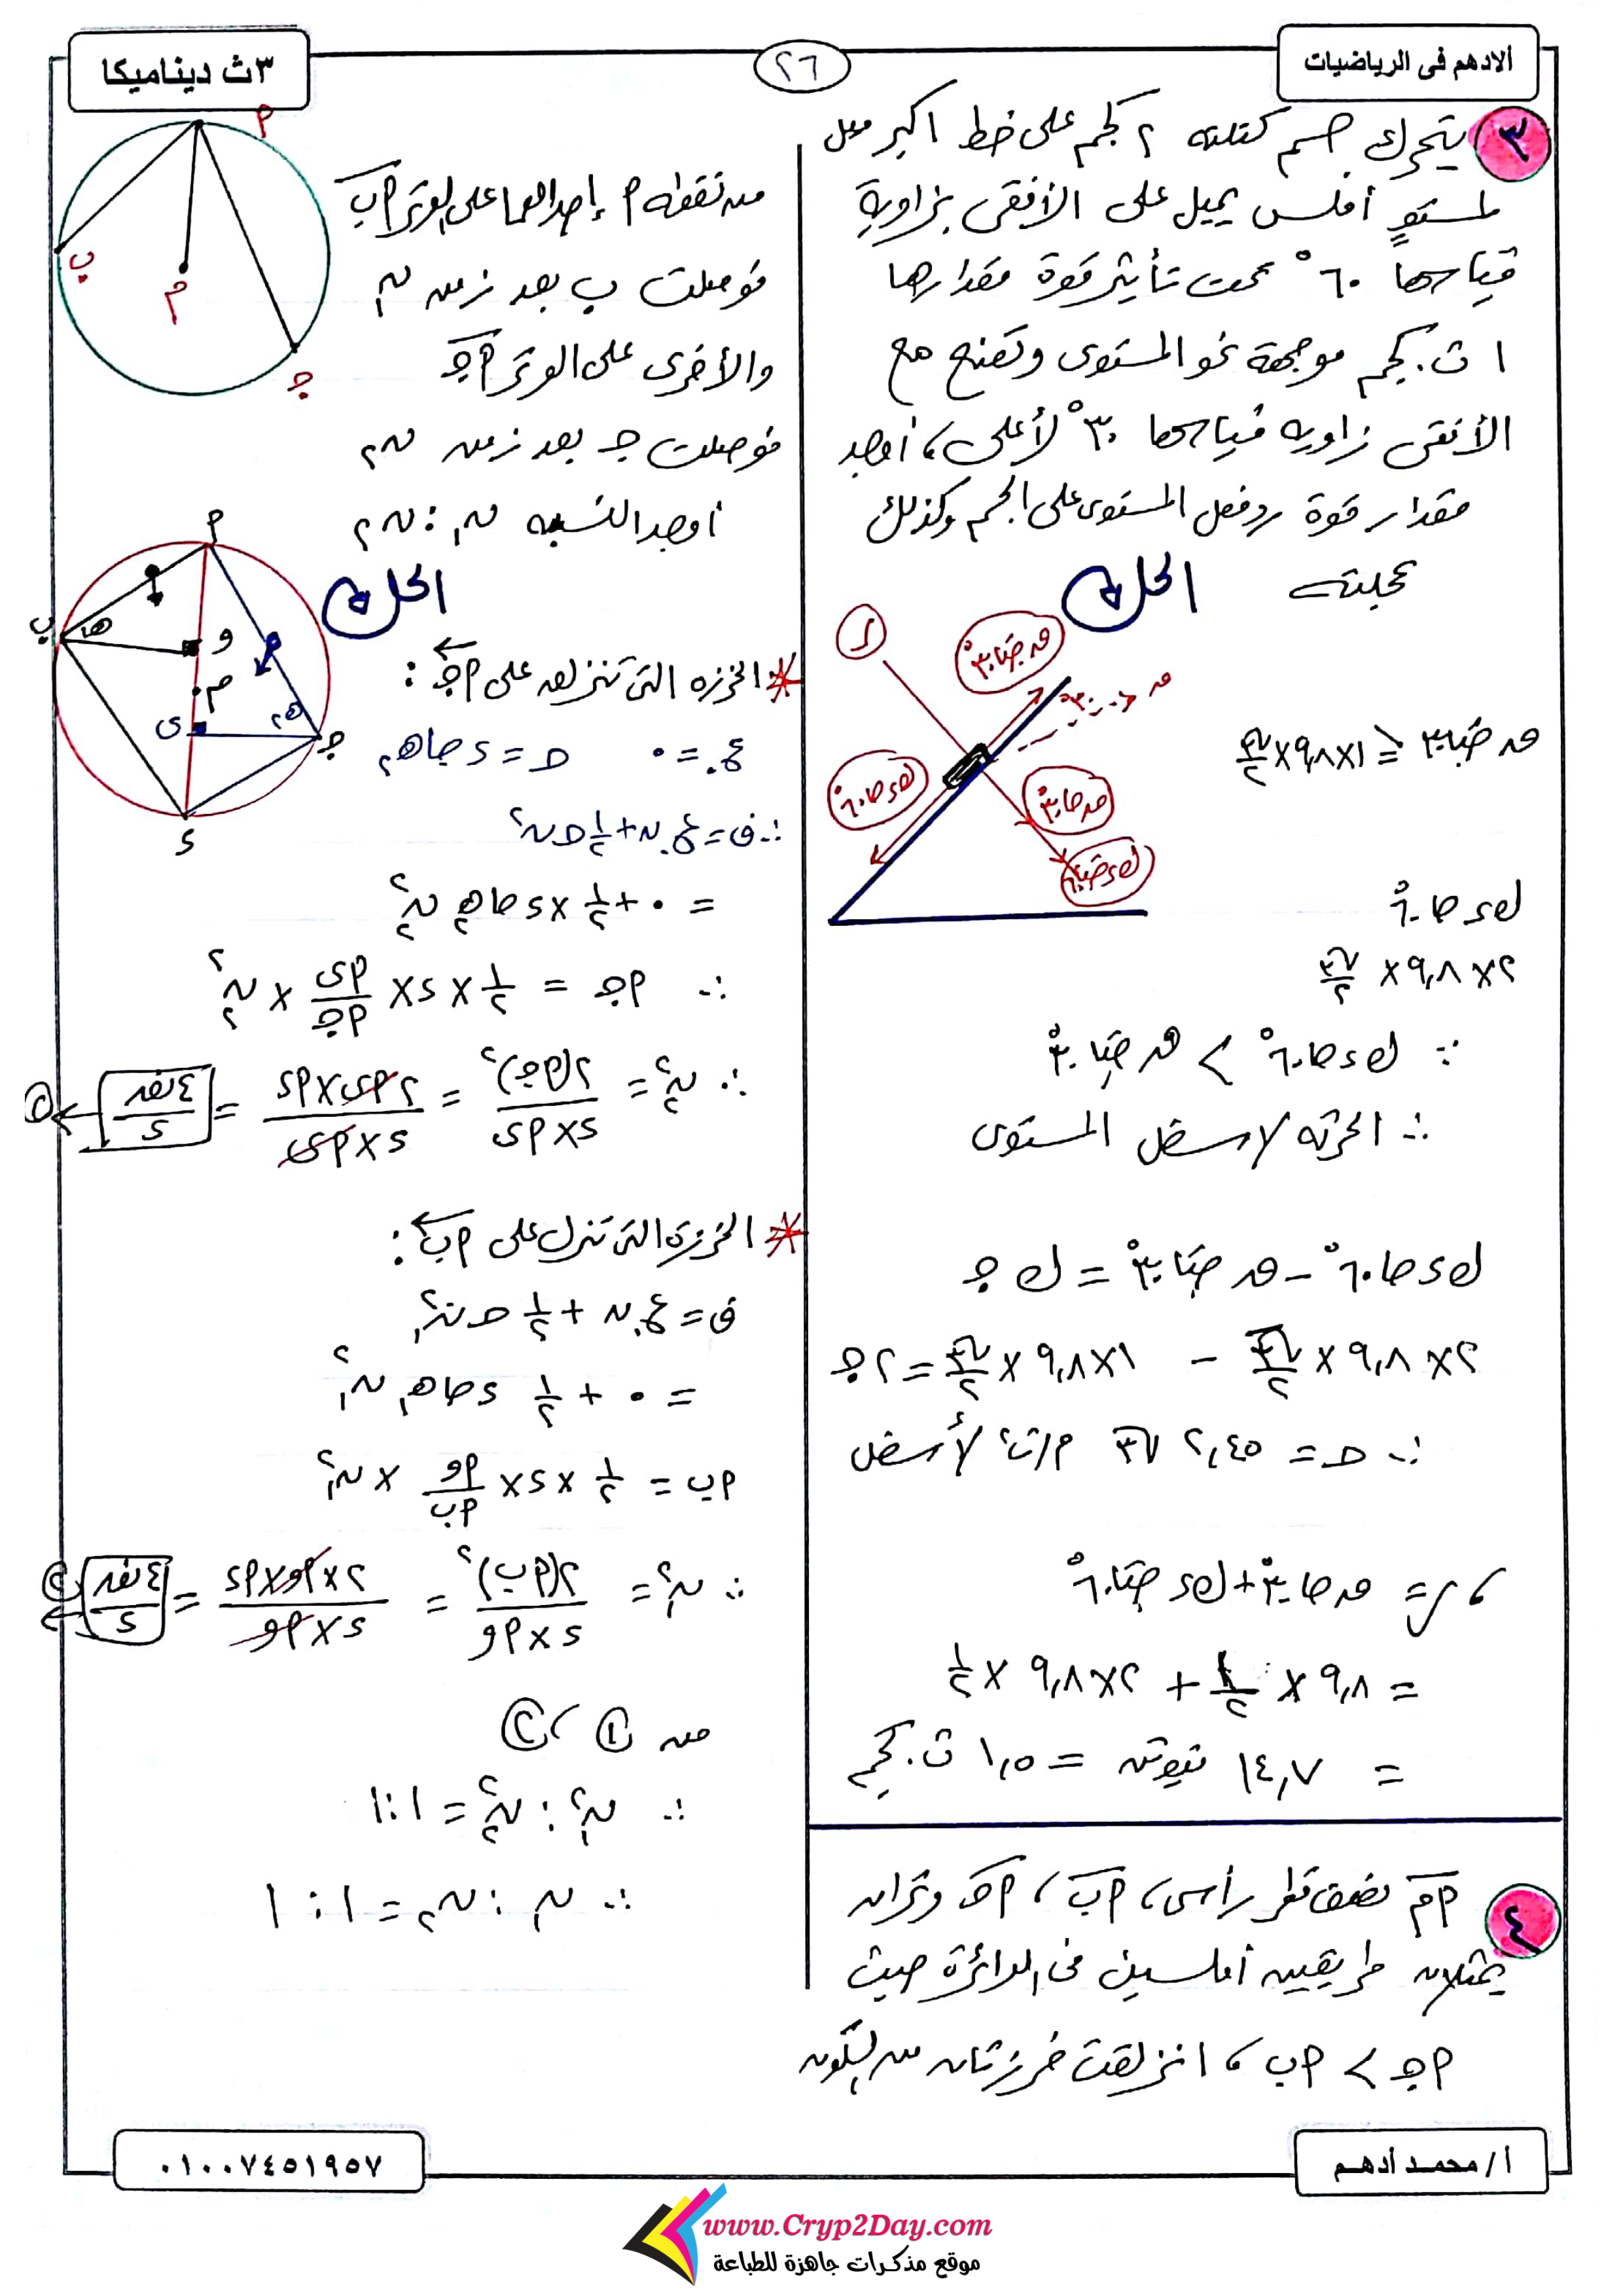 ألادهم فى الرياضيات
٢٦
٣ث ديناميكا
٣ يتحرك جسم كتلته ٢ كجم على خط اكبر ميل
لمستوٍ أملس يميل على الأفقى بزاوية
قياسها ٦٠° تحت تأثير قوة مقدارها
١ ث.كجم موجهة نحو المستوى وتصنع مع
الأفقى زاوية قياسها ٣٠° لأعلى، أوجد
مقدار قوة رد فعل المستوى على الجسم وكذلك
عجلته
الحل
ر
ق جتا٣٠°
ق
٣٠°
ك د جا٦٠°
ق جا٣٠°
ك د جتا٦٠°
ق جتا٣٠ = ١×٩,٨×√٣/٢
ك د جا٦٠°
٢×٩,٨×√٣/٢
∵ ك د جا٦٠° > ق جتا٣٠°
∴ الحركة لاسفل المستوى
ك د جا٦٠° − ق جتا٣٠° = ك جـ
٢×٩,٨×√٣/٢ − ١×٩,٨×√٣/٢ = ٢جـ
∴ حـ = ٢,٤٥ √٣ م/ث٢ لأسفل
، ر = ق جا٣٠° + ك د جتا٦٠°
= ٩,٨ × ١/٢ + ٢×٩,٨ × ١/٢
= ١٤,٧ نيوتن = ١,٥ ث.كجم
٤ م أ نصف قطر رأسى، أب، أجـ وتران
يمثلان طريقين أملسين فى الدائرة حيث
أجـ > أب ، انزلقت خرزتان من السكون
من نقطة أ إحداهما على الوتر أب
فوصلت ب بعد زمن ن١
والأخرى على الوتر أجـ
فوصلت جـ بعد زمن ن٢
أوجد النسبة ن١ : ن٢
أ
ب
م
جـ
الحل
أ
ب
هـ١
و
م
ى
هـ٢
جـ
د
* الخرزه التى تنزلق على أجـ :
ع. = ٠   حـ = د جاهـ٢
∴ ف = ع.ن + ١/٢ حـ ن٢
= ٠ + ١/٢ × د جاهـ٢ ن٢²
∴ أجـ = ١/٢ × د × أى/أجـ × ن٢²
∴ ن٢² = ٢(أجـ)²/د×أى = ٢أى×أد/د×أى = ٤نق/د ← ①
* الخرزة التى تنزل على أب :
ف = ع.ن + ١/٢ حـ ن١²
= ٠ + ١/٢ د جاهـ١ ن١²
أب = ١/٢ × د × أو/أب × ن١²
∴ ن١² = ٢(أب)²/د×أو = ٢×أو×أد/د×أو = ٤نق/د ← ②
من ① ، ②
∴ ن١² : ن٢² = ١:١
∴ ن١ : ن٢ = ١ : ١
أ/ محمد أدهم
٠١٠٠٧٤٥١٩٥٧
www.Cryp2Day.com
موقع مذكرات جاهزة للطباعة